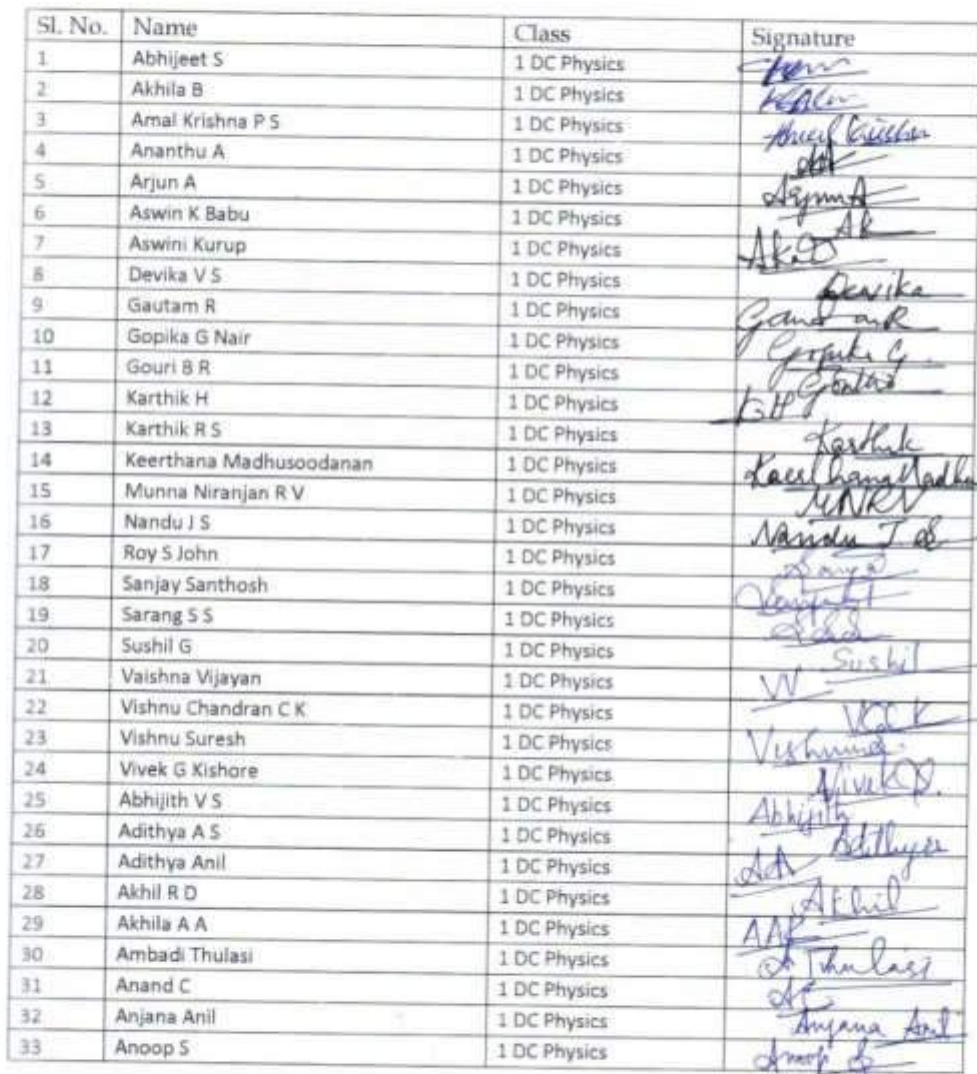 Sl. No. Name Class Signature
1 Abhijeet S 1 DC Physics
2 Akhila B 1 DC Physics
3 Amal Krishna P S 1 DC Physics
4 Ananthu A 1 DC Physics
5 Arjun A 1 DC Physics Arjun A
6 Aswin K Babu 1 DC Physics
7 Aswini Kurup 1 DC Physics
8 Devika V S 1 DC Physics Devika
9 Gautam R 1 DC Physics
10 Gopika G Nair 1 DC Physics Gopika G.
11 Gouri B R 1 DC Physics
12 Karthik H 1 DC Physics
13 Karthik R S 1 DC Physics Karthik
14 Keerthana Madhusoodanan 1 DC Physics
15 Munna Niranjan R V 1 DC Physics MNRV
16 Nandu J S 1 DC Physics Nandu J.S
17 Roy S John 1 DC Physics
18 Sanjay Santhosh 1 DC Physics
19 Sarang S S 1 DC Physics
20 Sushil G 1 DC Physics Sushil
21 Vaishna Vijayan 1 DC Physics VV
22 Vishnu Chandran C K 1 DC Physics VCCK
23 Vishnu Suresh 1 DC Physics
24 Vivek G Kishore 1 DC Physics Vivek
25 Abhijith V S 1 DC Physics Abhijith
26 Adithya A S 1 DC Physics Adithya
27 Adithya Anil 1 DC Physics AA
28 Akhil R D 1 DC Physics Akhil
29 Akhila A A 1 DC Physics
30 Ambadi Thulasi 1 DC Physics A Thulasi
31 Anand C 1 DC Physics AC
32 Anjana Anil 1 DC Physics Anjana Anil
33 Anoop S 1 DC Physics Anoop S